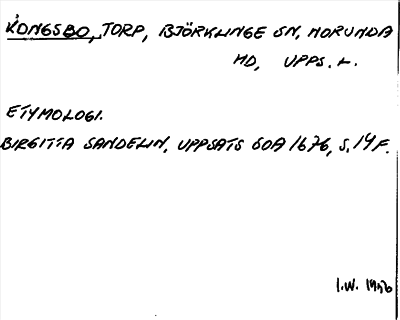 KONGSBO, TORP, BJÖRKLINGE SN, NORUNDA
HD, UPPS. L.
ETYMOLOGI.
BIRGITTA SANDELIN, UPPSATS SOA 1676, S. 14 F.
I.W.